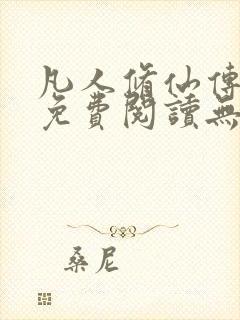 凡人脩仙傳
免費閱讀無
桑尼